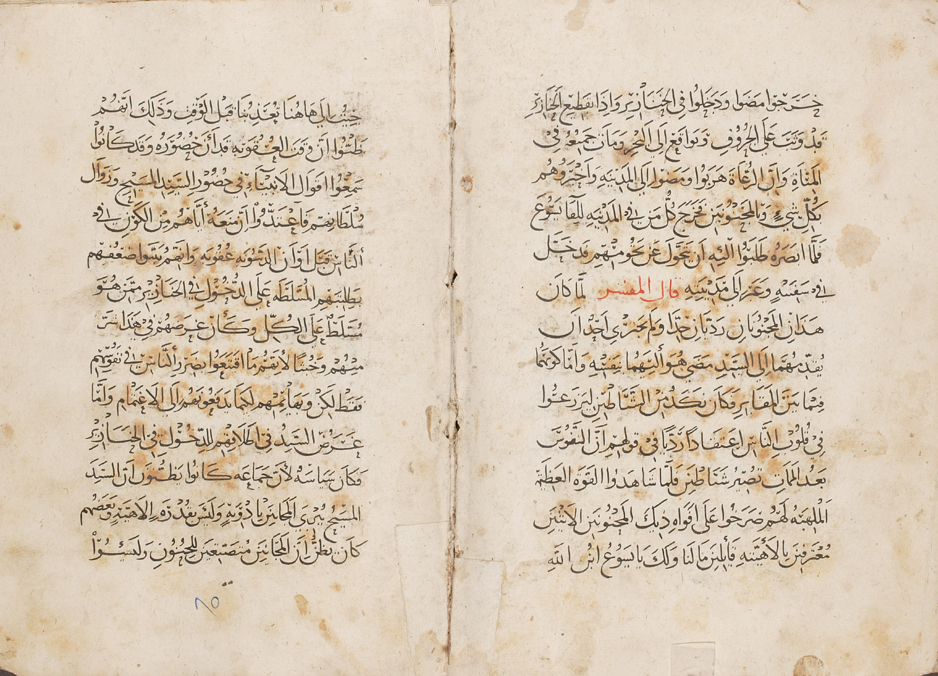 خرجوا مضوا ودخلوا في الخنازير واذا بقطيع الخنازير
قد وثبت على الجروف وتواقع الى البحر ومات جميعه في
المياة وان الرعاة هربوا ومضوا الى المدينه واخبروهم
بكل شيء وبالمجنونين فخرج كل من في المدينه للقا يسوع
فلما ابصروه طلبوا اليه ان يتحول عن تخومهم فدخل
في سفينه وعبر الى مدينته قال المفسر لما كان
هذان المجنونان رديان جدا ولم يجتري احد ان
يقدمهما الى السيد مضى هو اليهما بنفسه واما كونهما
فيما بين المقابر فكان بكد من الشياطين ليزرعوا
في قلوب الناس اعتقادا رديا في قولهم ان النفوس
بعد الممات تصير شياطين فلما شاهدوا القوة العظيمة
الملهبه لهم صرخوا على افواه ذينك المجنونين الاثنين
معترفين بالاهيته قايلين مالنا ولك يا يسوع ابن الله
جيت الى هاهنا تعذبنا قبل الوقت وذلك انهم
ظنوا ان وقت العقوبه قد آن حضوره وقد كانوا
سمعوا اقوال الانبياء في حضور السيد المسيح وزوال
سلطانهم فاعتدوا ان منعه اياهم من الكون في
الناس قبل اوان الدينونه عقوبه وانهم بينوا ضعفهم
بطلبهم المسلطه على الدخول في الخنازير ممن هو
مسلط على الكل وكان غرضهم في هذا شر
منهم وخبثا لانهم ما اقتنعوا بضرر الناس في نفوسهم
فقط لكن وبهائمهم لكيما يدفعونهم الى الاغتمام واما
غرض السيد في اطلاقهم للدخول في الخنازير
فكان سياسه لان جماعه كانوا يظنون ان السيد
المسيح يبري المجانين بادويه وليس بقدرة الاهيه وبعضهم
كان يظن ان المجانين متصنعين للجنون وليسوا
٨٥